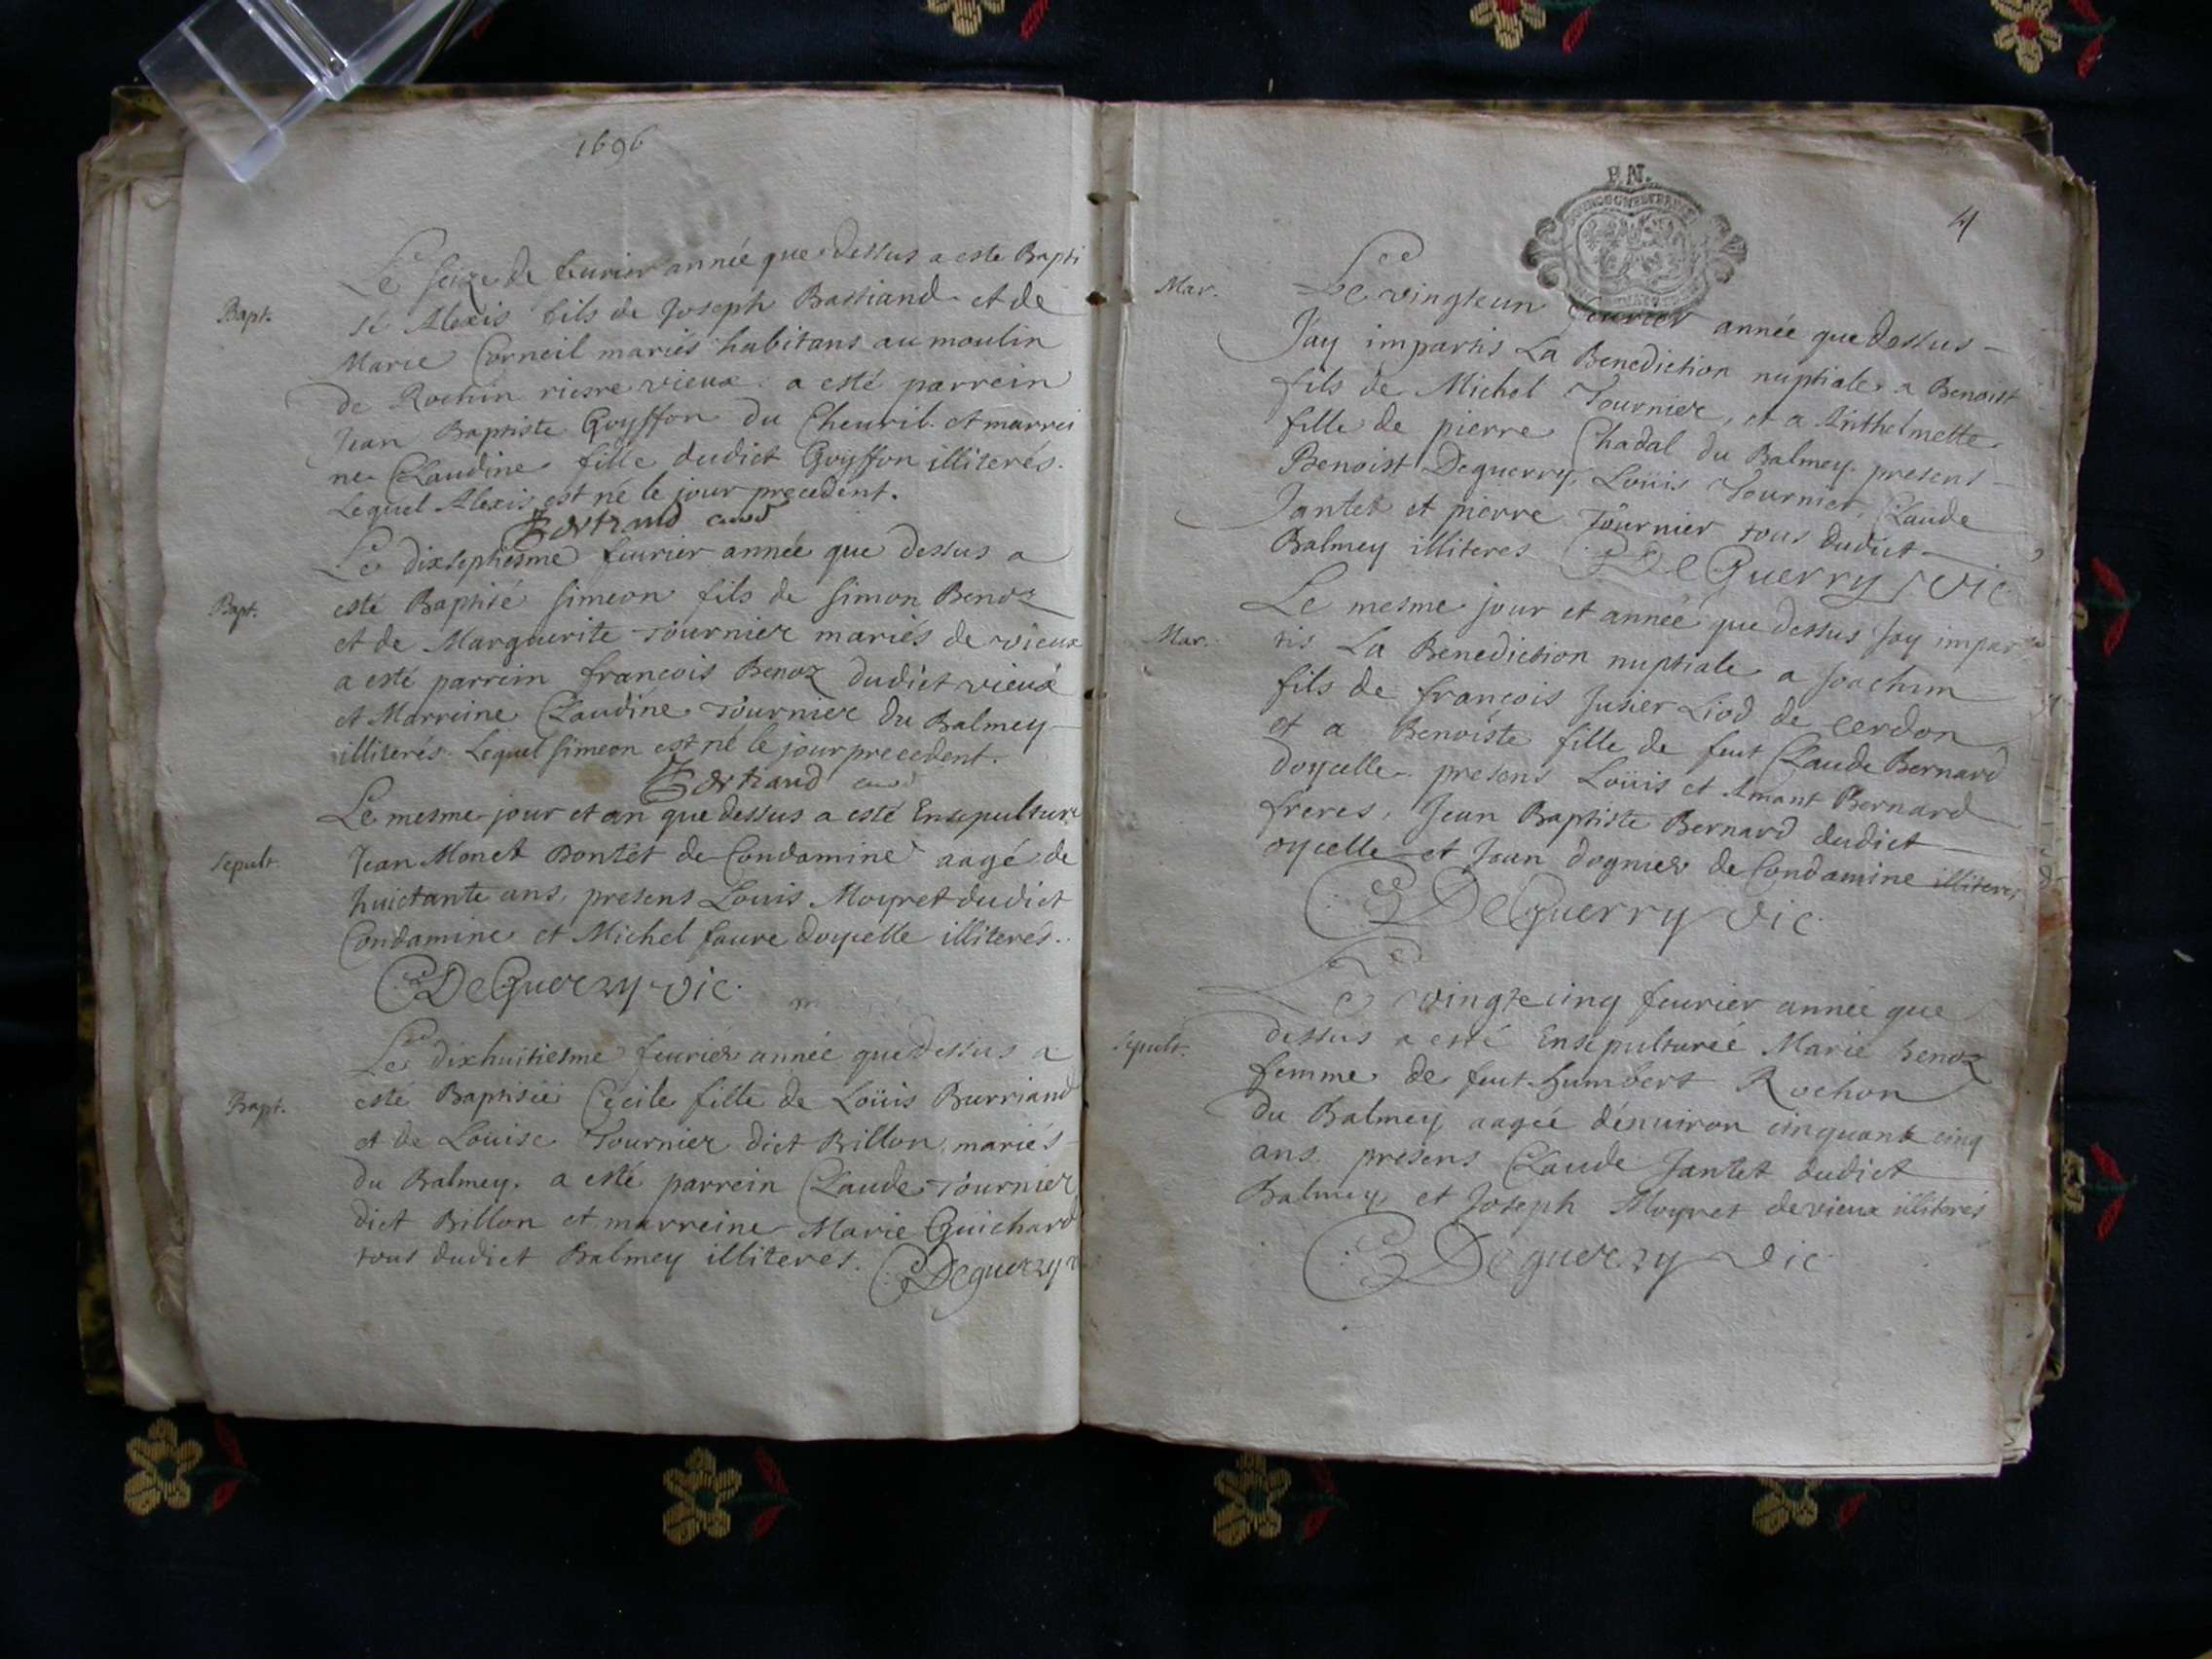 1696
Le seize de feurier année que dessus a este Bapti
Bapt.
sé Alexis fils de Joseph Bastiand et de
Marie Corneil mariés habitans au moulin
de Rochin riere vieux a esté parrein
Jean Baptiste Goyffon du Cheuril et marrei
ne Claudine fille dudict Goyffon illiterés.
Lequel Alexis est né le jour precedent.
Bertrand curé
Le dixseptiesme feurier année que dessus a
Bapt.
esté Baptisé simeon fils de simon Benoz
et de Marguerite Tournier mariés de vieux
a esté parrein francois Benoz dudict vieux
et Marreine Claudine Tournier du Balmey
illiterés. Lequel simeon est né le jour precedent.
Bertrand curé
Le mesme jour et an que dessus a esté Ensepulturé
Sepult.
Jean Monet Bontet de Condamine aagé de
huictante ans, presens Louis Moyret dudict
Condamine et Michel faure doycelle illiterés.
DeGuerry vic.
Le dixhuitiesme feurier année que dessus a
Bapt.
esté Baptisée Cécile fille de Loüis Burriand
et de Louise Tournier dict Billon, mariés
du Balmey. a esté parrein Claude Tournier
dict Billon et marreine Marie Guichard
tous dudict Balmey illiteres. Deguerry v
P.N.
4
Mar.
Le vingteun feurier année que dessus
Jay impartis La Benediction nuptiale a Benoist
fils de Michel Tournier, et a Anthelmette
fille de pierre Chadal du Balmey. presens
Benoist Deguerry, Loüis Tournier, Claude
Jantet et pierre Tournier tous dudict
Balmey illiteres DeGuerry vic
Le mesme jour et année que dessus Jay impar
Mar.
tis La Benediction nuptiale a Joachim
fils de francois Jusier Liod de cerdon
et a Benoiste fille de feut Claude Bernard
doycelle. presens Loüis et Amant Bernard
freres, Jean Baptiste Bernard dudict
oycelle et Jean dognier de Condamine illiteres
DeGuerry vic.
Le vingtecinq feurier année que
Sepult.
dessus a esté Ensépulturéé Marie benoz
femme de feut humbert Rochon
du Balmey aagéé dénuiron cinquante cinq
ans. presens Claude Jantet dudict
Balmey et Joseph Moyret de vieux illiterés
Déguerry vic